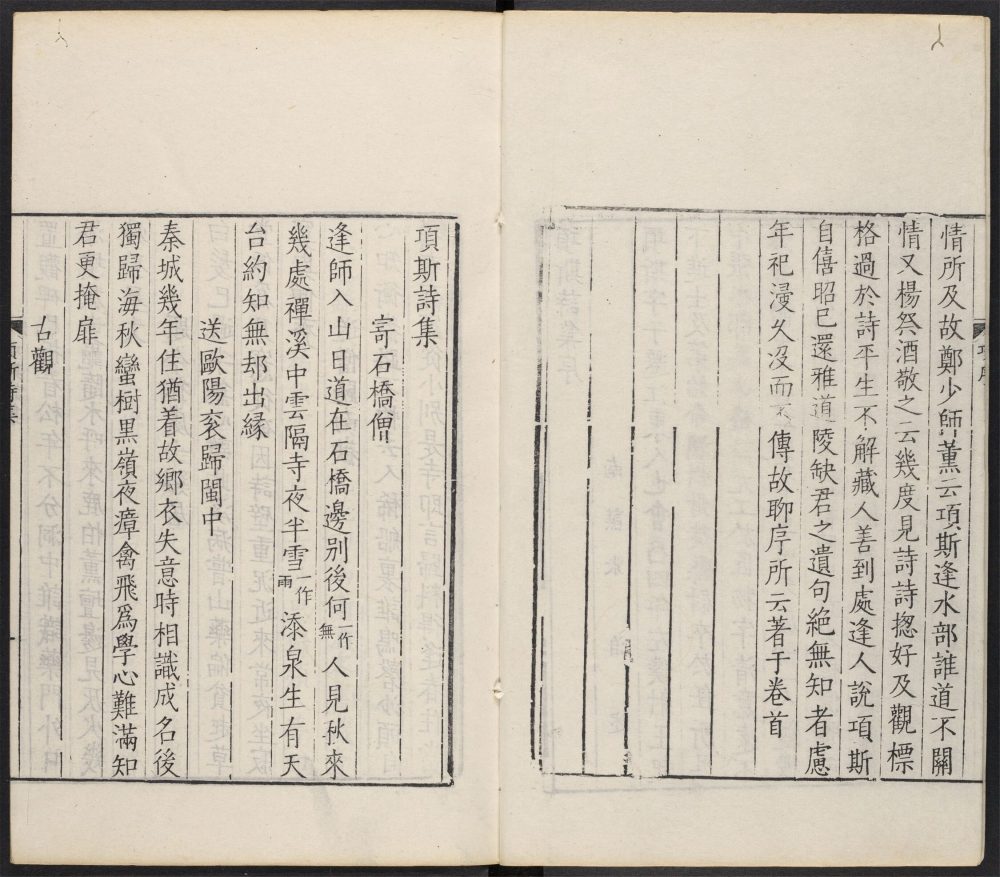 情所及故鄭少師薫云項斯逢水部誰道不關
情又楊祭酒敬之云幾度見詩詩揔好及觀標
格過於詩平生不解藏人善到處逢人說項斯
自僖昭已還雅道陵缺君之遺句絶無知者慮
年祀漫久沒而不傳故聊序所云著于卷首
項斯詩集
寄石橋僧
逢師入山日道在石橋邊別後何一作無人見秋來
幾處禪溪中雲隔寺夜半雪一作雨添泉生有天
台約知無却出縁
送歐陽衮歸閩中
秦城幾年住猶着故鄉衣失意時相識成名後
獨歸海秋蠻樹黒嶺夜瘴禽飛爲學心難滿知
君更掩扉
古觀
項斯詩集
一